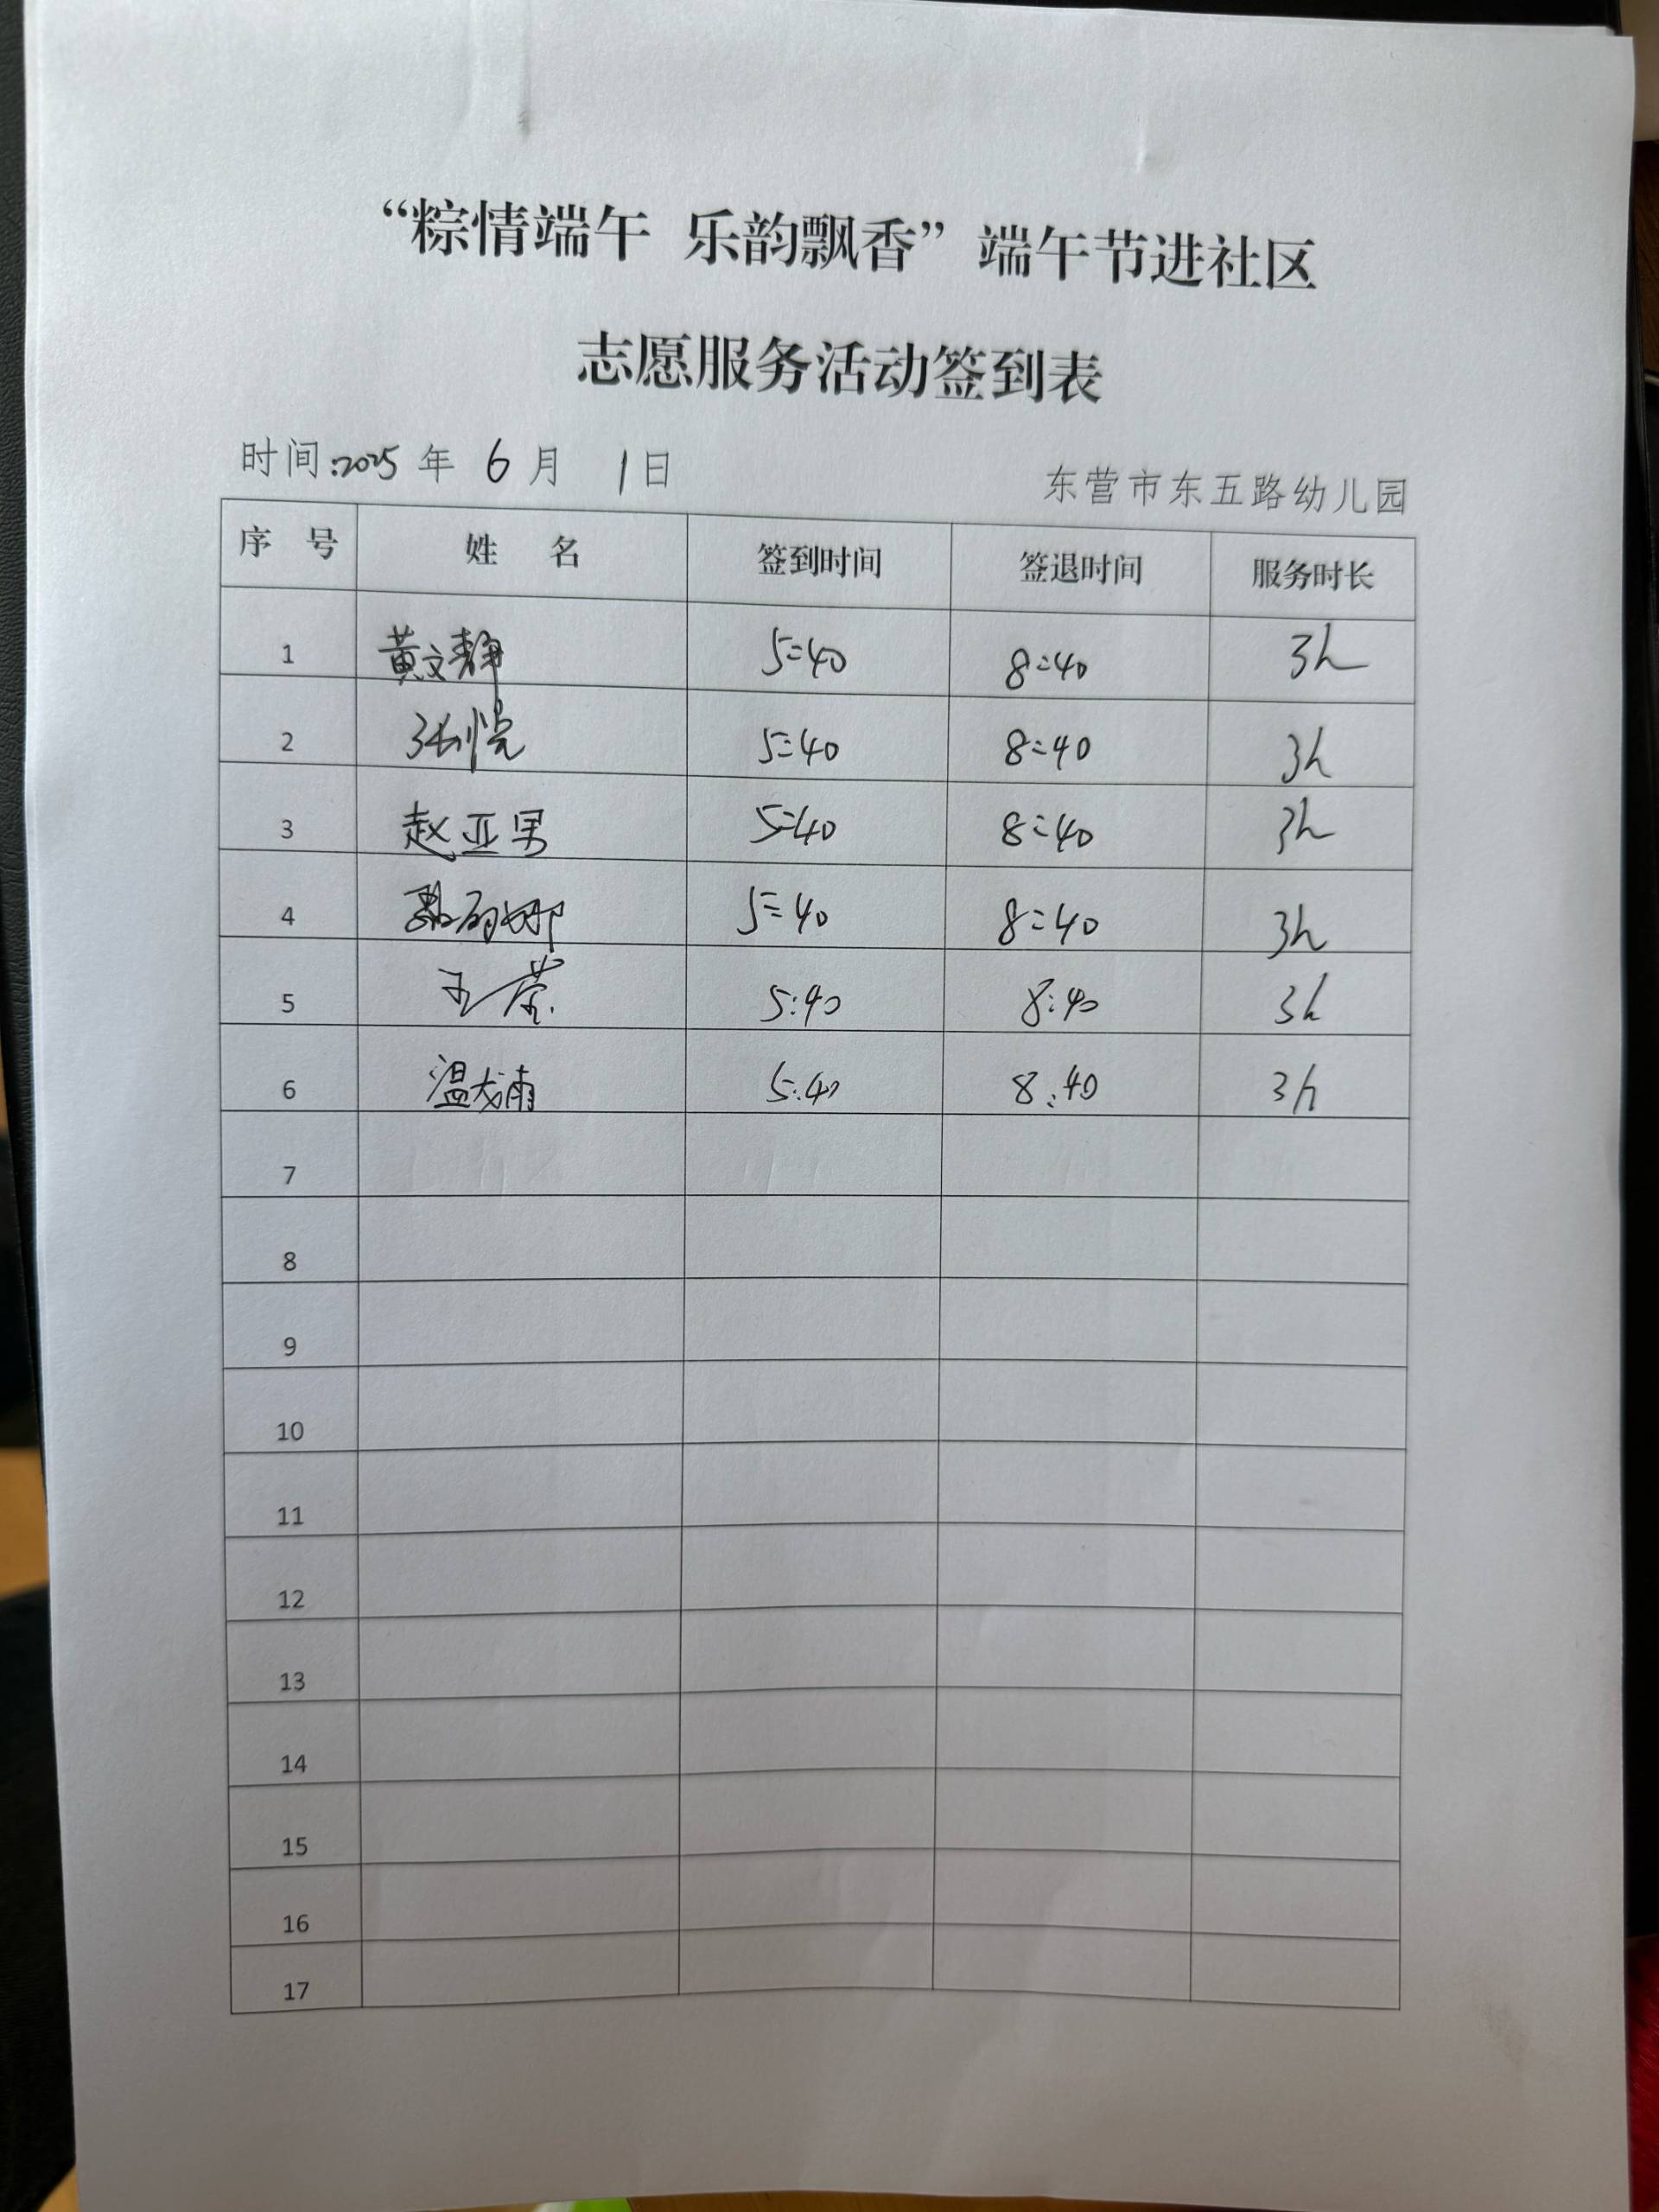 “粽情端午 乐韵飘香”端午节进社区
志愿服务活动签到表
时间:2025 年 6 月 1日 东营市东五路幼儿园
序 号 姓 名 签到时间 签退时间 服务时长
1 黄文静 5:40 8:40 3h
2 张悦 5:40 8:40 3h
3 赵亚男 5:40 8:40 3h
4 5:40 8:40 3h
5 王荣 5:40 8:40 3h
6 5:40 8:40 3h
7
8
9
10
11
12
13
14
15
16
17